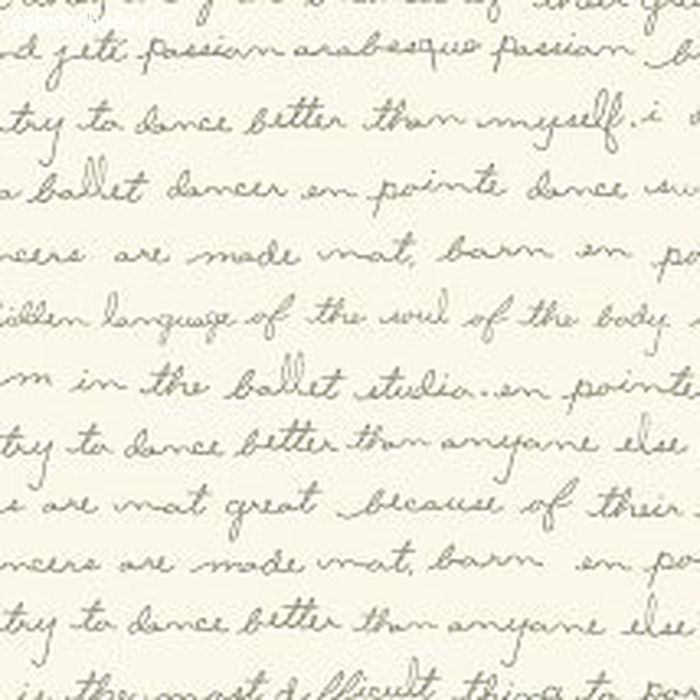 of their
nd jeté passion arabesque passion
try to dance better than myself. i
a ballet dancer en pointe dance
ncers are made not, born en po
idden language of the soul of the body
m in the ballet studio. en pointe
try to dance better than anyone else
s are not great because of their
ncers are made not, born en po
try to dance better than anyone else
is the most difficult thing to